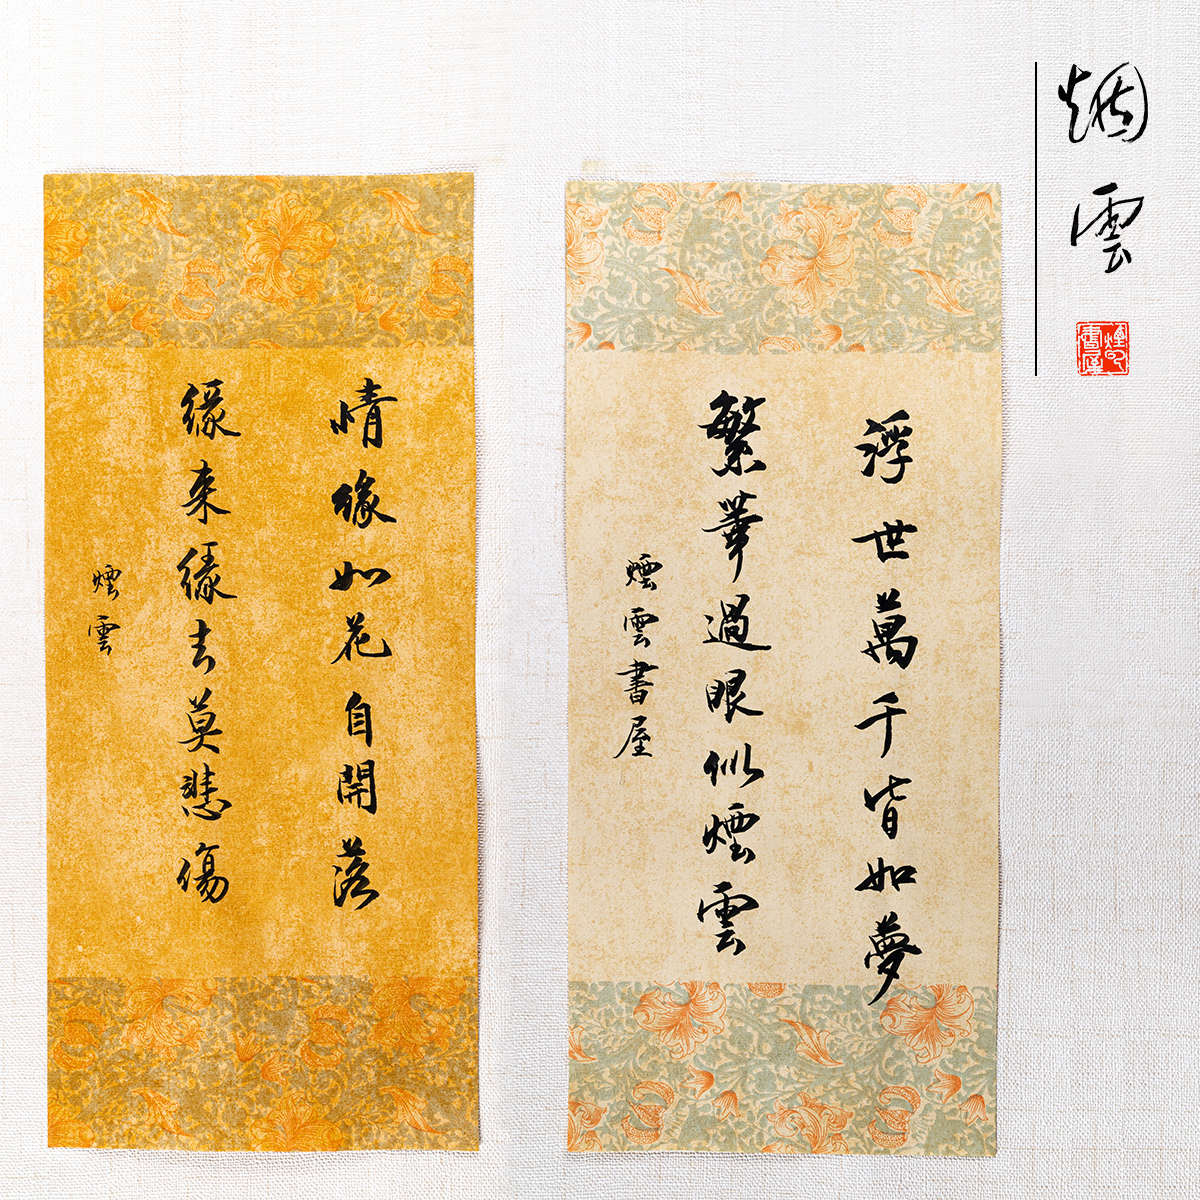 烟雲
浮世萬千皆如夢
繁華過眼似煙雲
煙雲書屋
情緣如花自開落
緣来緣去莫悲傷
煙雲